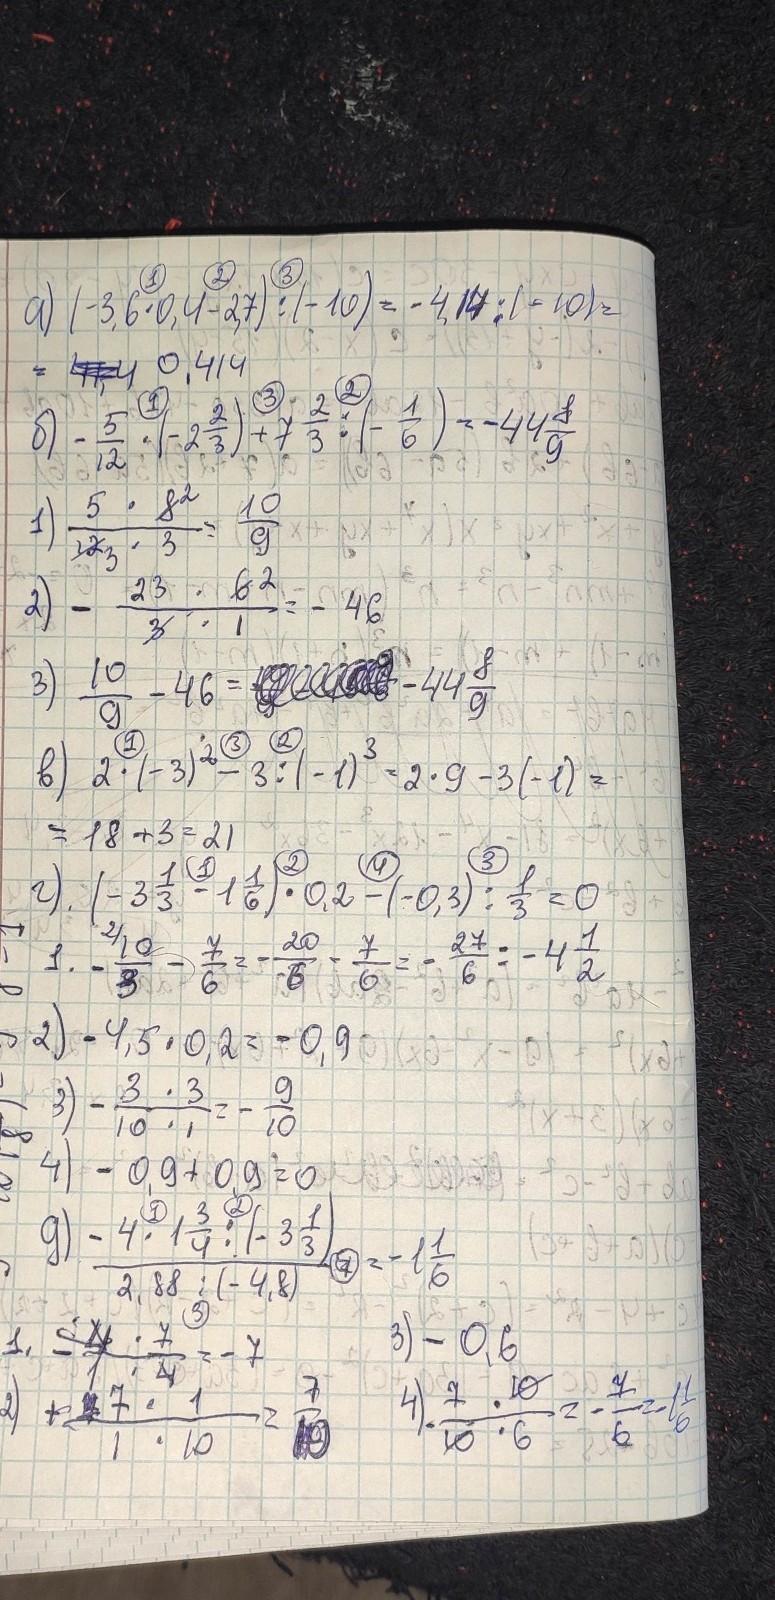 а) (-3,6·0,4-2,7):(-10)= -4,14:(-10)=
= 0,414
б) -5/12·(-2 2/3)+7 2/3:(-1/6)=-44 8/9
1) (5·8²)/(12₃·3)=10/9
2) -(23·6²)/(3·1)=-46
3) 10/9-46= -44 8/9
в) 2·(-3)²-3:(-1)³=2·9-3(-1)=
=18+3=21
г). (-3 1/3-1 1/6)·0,2-(-0,3):1/3=0
1. -10/3-7/6=-20/6-7/6=-27/6=-4 1/2
2) -4,5·0,2=-0,9
3) -(3·3)/(10·1)=-9/10
4) -0,9+0,9=0
д) (-4·1 3/4:(-3 1/3))/(2,88:(-4,8))=-1 1/6
1. -(4·7)/(1·4)=-7 3) -0,6
2) +(7·1)/(1·10)=7/10 4) -(7·10)/(10·6)=-7/6=-1 1/6